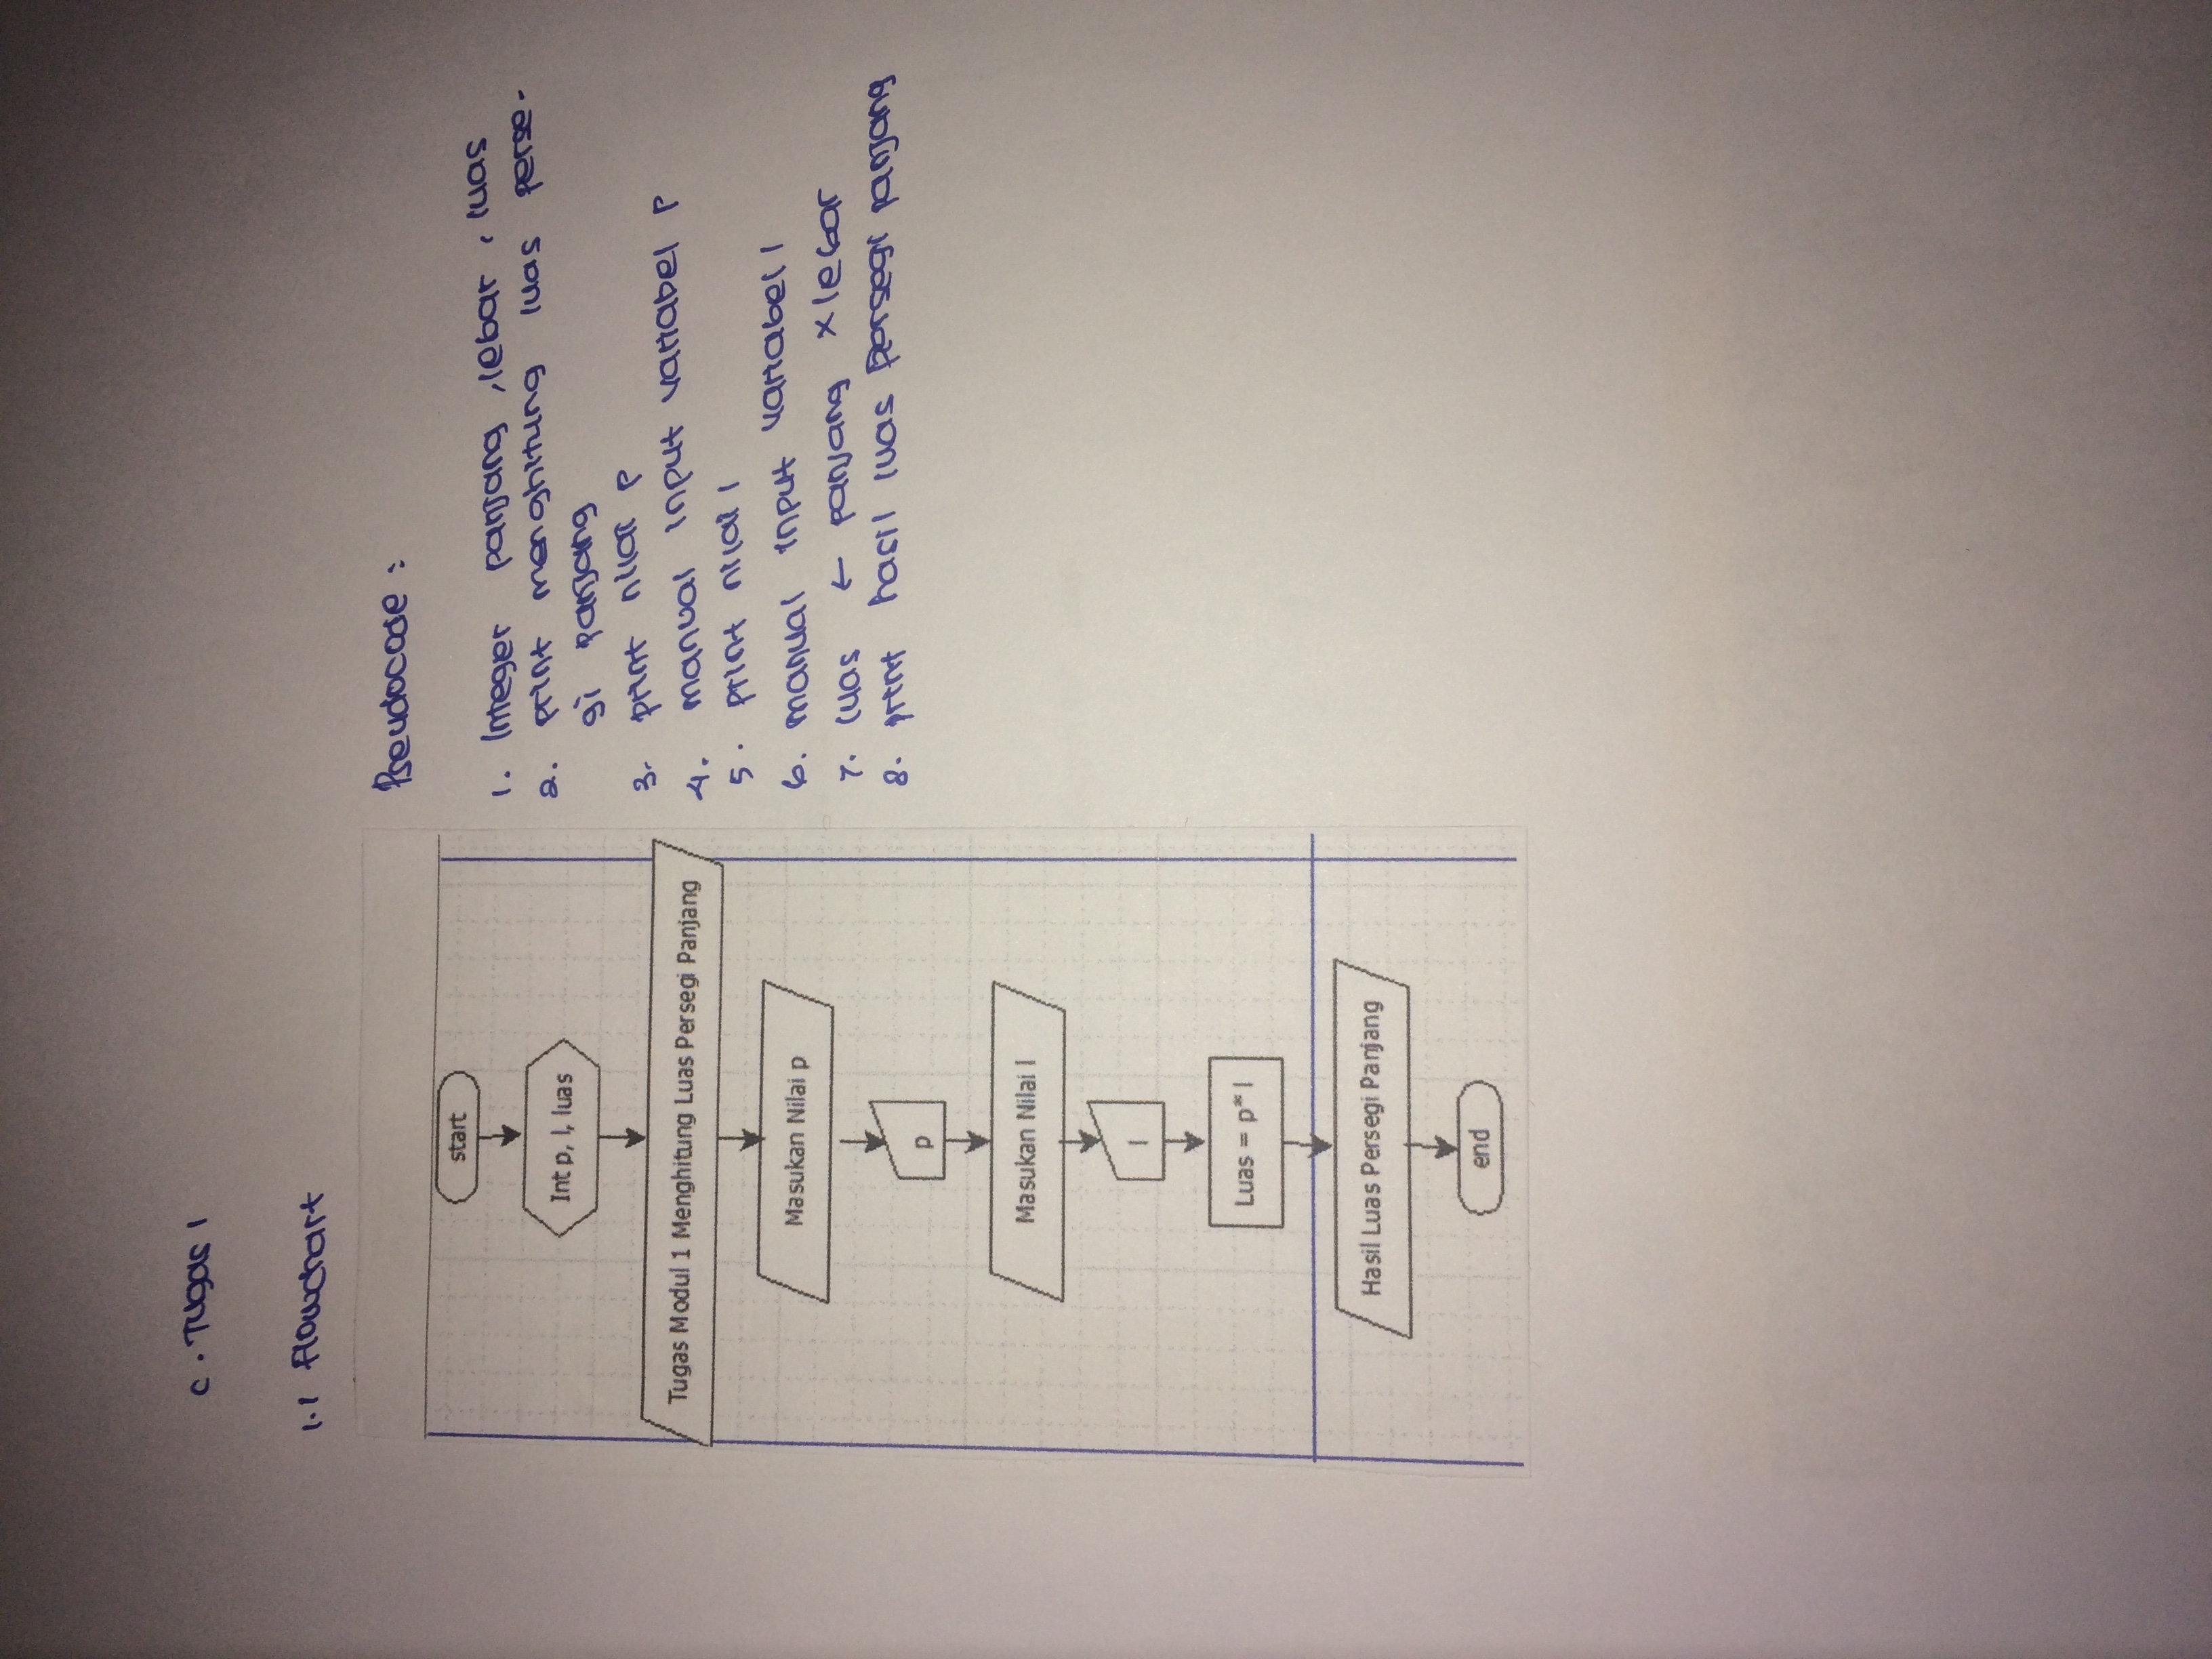 c. Tugas 1
1.1 Flowchart
start
Int p, l, luas
Tugas Modul 1 Menghitung Luas Persegi Panjang
Masukan Nilai p
p
Masukan Nilai l
l
Luas = p* l
Hasil Luas Persegi Panjang
end
Pseudocode :
1. Integer panjang , lebar , luas
2. print menghitung luas perse-
gi panjang
3. print nilai p
4. manual input variabel p
5. print nilai l
6. manual input variabel l
7. luas ← panjang x lebar
8. print hasil luas persegi panjang